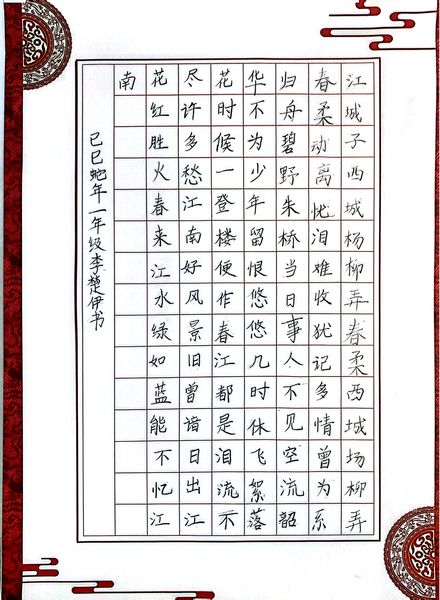 江城子西城杨柳弄春柔西城场柳弄
春柔动离忧泪难收犹记多情曾为系
归舟碧野朱桥当日事人不见空流韶
华不为少年留恨悠悠几时休飞絮落
花时候一登楼便作春江都是泪流不
尽许多愁江南好风景旧曾谙日出江
花红胜火春来江水绿如蓝能不忆江
南
己巳蛇年一年级李楚伊书